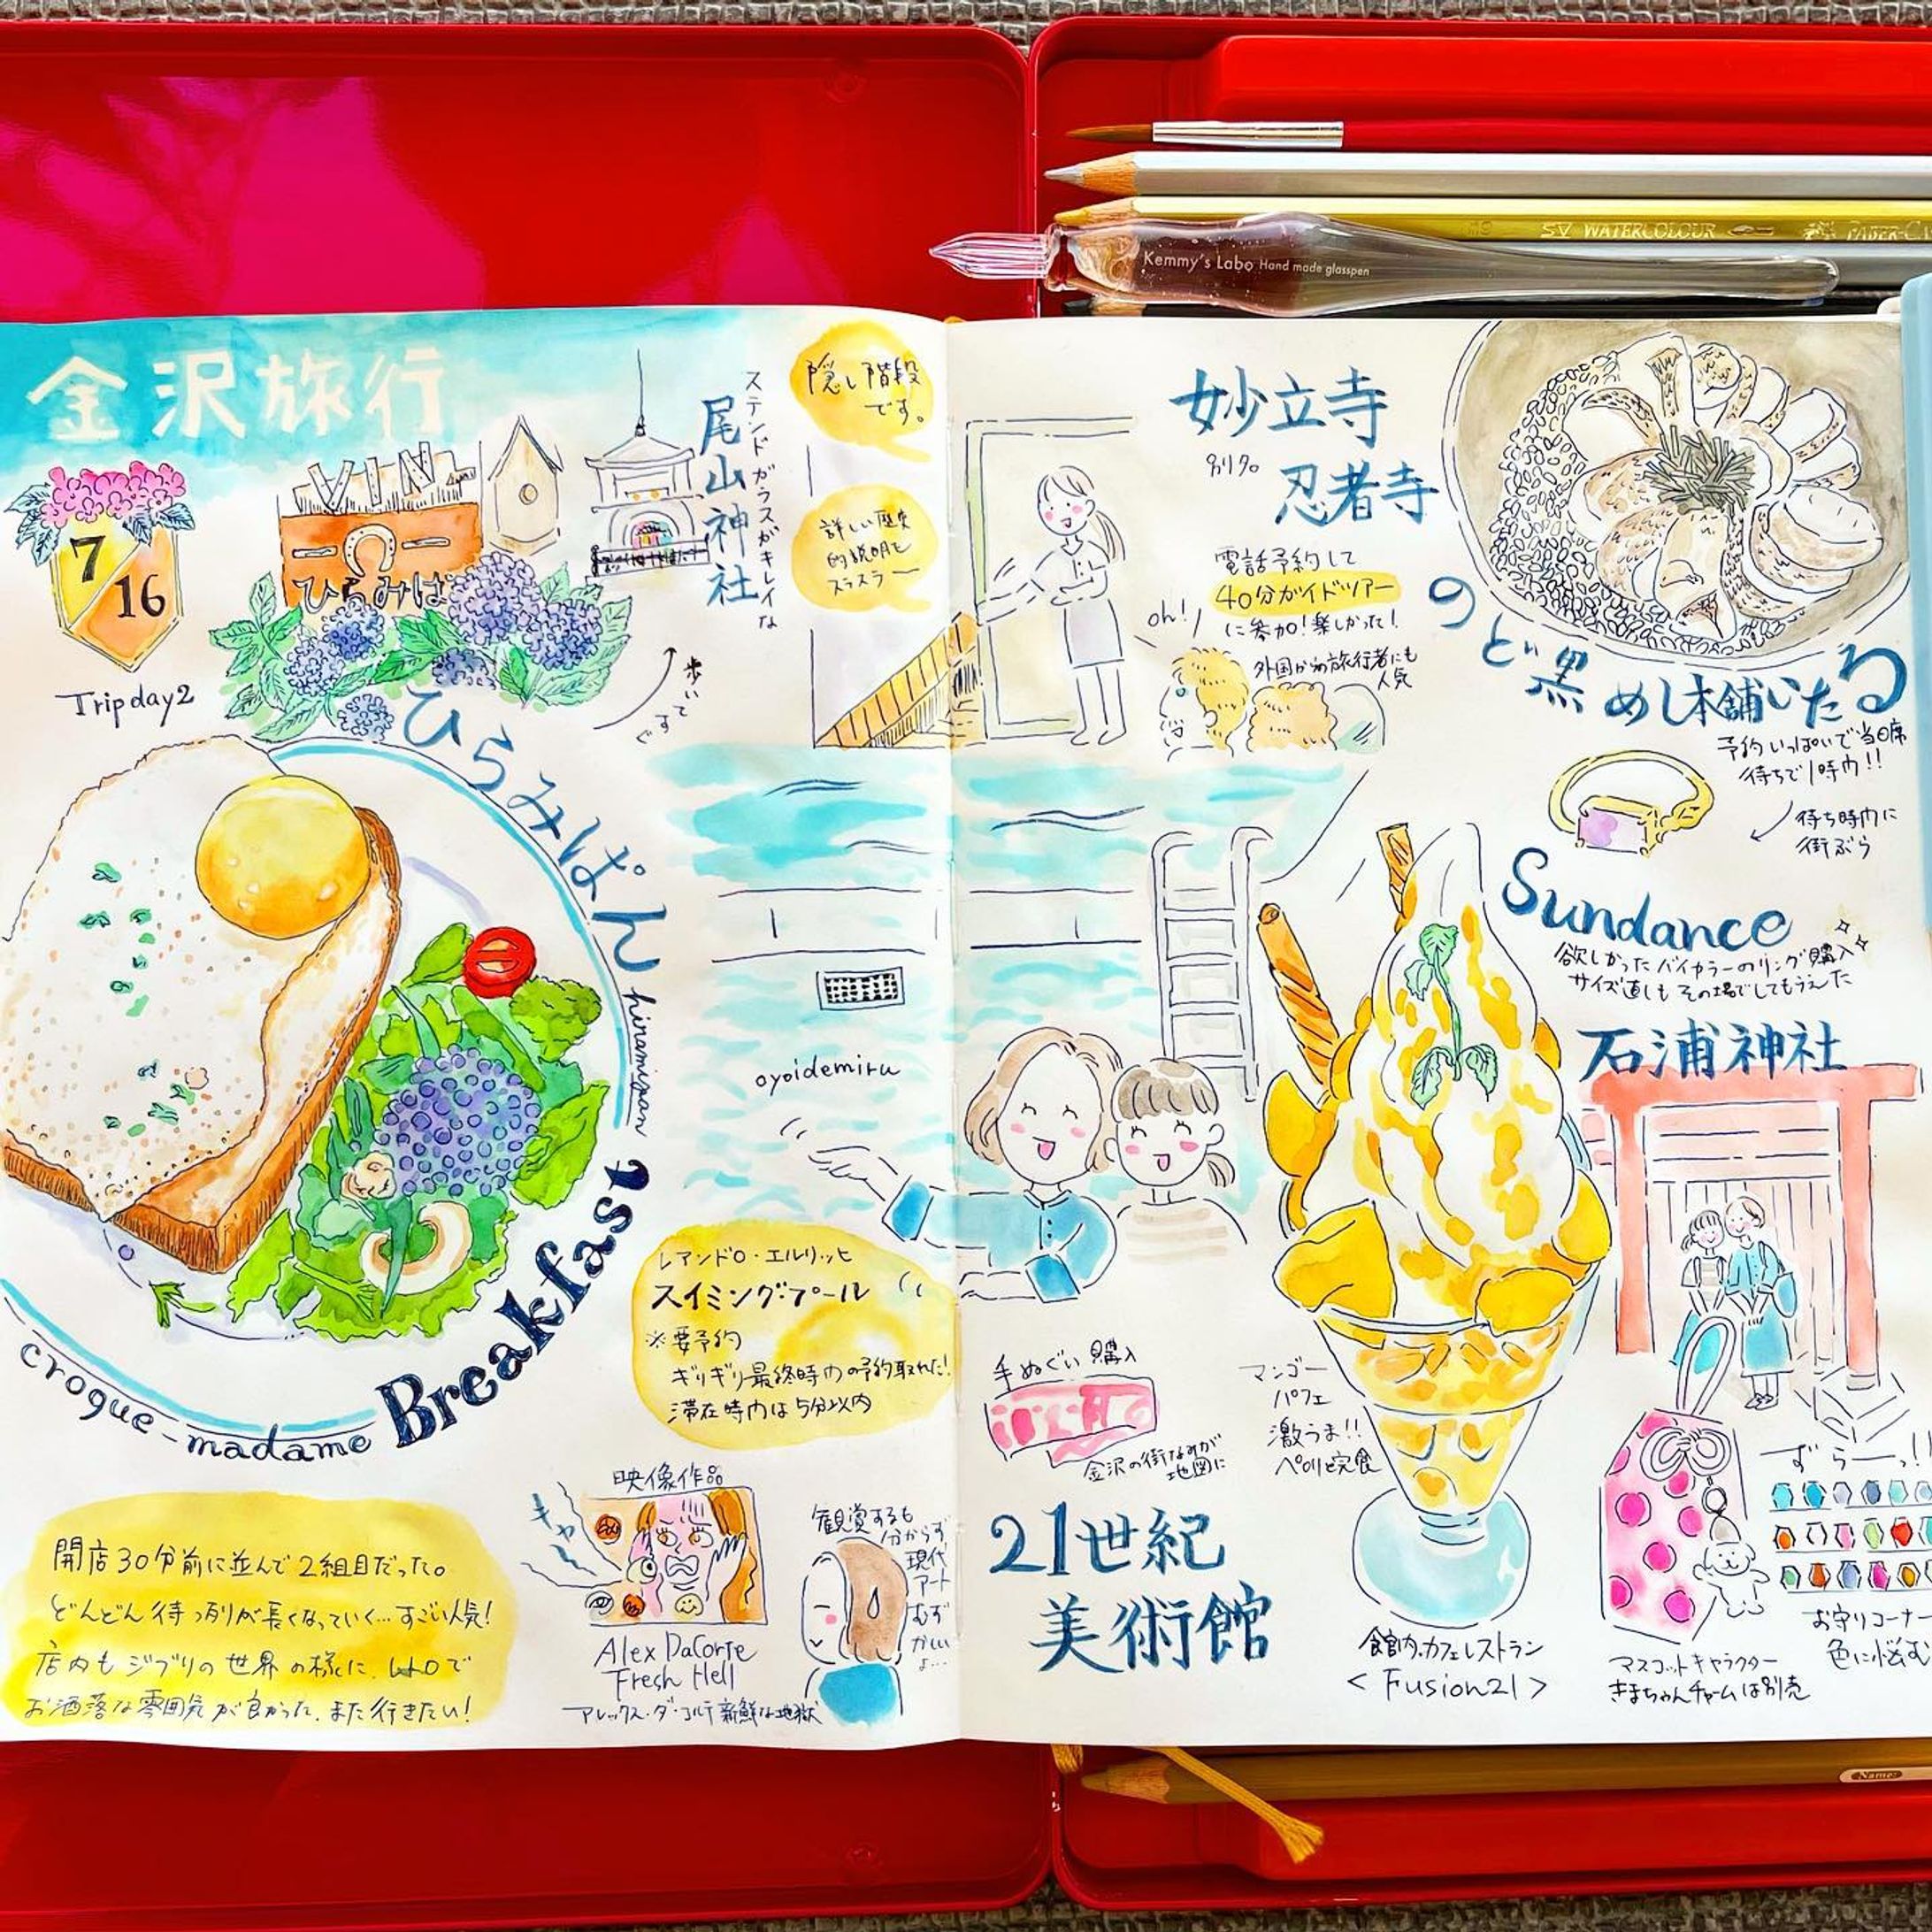 Kemmy's Labo Hand made glasspen
SV WATERCOLOUR
FABER-CA
金沢旅行
7
16
Trip day2
VIN
ひらみぱ
尾山神社
ステンドガラスがキレイな
歩いて
すぐ
隠し階段
です。
詳しい歴史
的説明を
スラスラー
ひらみぱん
hiramipan
Breakfast
crogue-madame
開店30分前に並んで2組目だった。
どんどん待つ列が長くなっていく…すごい人気!
店内もジブリの世界の様に、レトロで
お洒落な雰囲気が良かった。また行きたい!
oyoidemiru
レアンドロ・エルリッヒ
スイミング・プール
※要予約
ギリギリ最終時間の予約取れた!
滞在時間は5分以内
映像作品
キャー
Alex DaCorte
Fresh Hell
アレックス・ダ・コルテ 新鮮な地獄
観賞するも
分からず
現代
アート
むず
かしい
よ…
妙立寺
別名
忍者寺
電話予約して
40分ガイドツアー
に参加!楽しかった!
oh!
外国からの旅行者にも
人気
のど黒めし本舗いたる
予約いっぱいで当日席
待ちで1時間!!
待ち時間に
街ぶら
Sundance
欲しかったバイカラーのリング購入
サイズ直しもその場でしてもらえた
石浦神社
手ぬぐい購入
金沢の街なみが
地図に
21世紀
美術館
マンゴー
パフェ
激うま!!
ペロリと完食
館内カフェレストラン
<Fusion21>
マスコットキャラクター
きまちゃんチャームは別売
ずらーっ!!
お守りコーナー
色に悩む
Name: